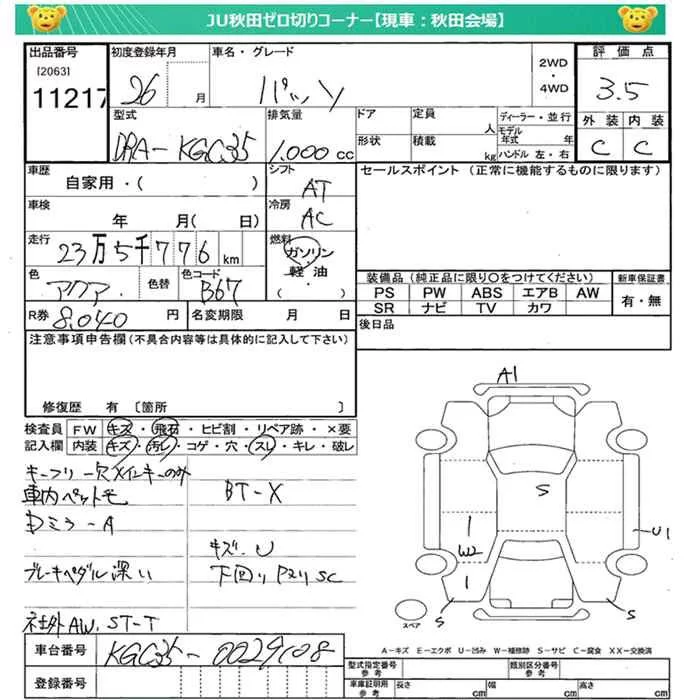 JU秋田ゼロ切りコーナー【現車：秋田会場】
出品番号
[2063]
11217
初度登録年月
26 月
車名・グレード
パッソ
2WD
・
4WD
評価点
3.5
外装 内装
C C
型式
DBA-KGC35
排気量
1,000 cc
ドア
定員
人
形状
積載
kg
ディーラー・並行
モデル年式 年
ハンドル 左・右
車歴
自家用・( )
シフト
AT
セールスポイント（正常に機能するものに限ります）
車検
年 月( 日)
冷房
AC
走行
23万5千776 km
燃料
ガソリン
・
軽油
( )
色
アクア
色替
色コード
B67
装備品（純正品に限り○をつけてください）
PS PW ABS エアB AW
SR ナビ TV カワ
新車保証書
有・無
R券 8,040 円
名変期限 月 日
後日品
注意事項申告欄（不具合内容等は具体的に記入して下さい）
修復歴 有 〔箇所 〕
検査員
記入欄
FW キズ・飛石・ヒビ割・リペア跡・×要
内装 キズ・汚レ・コゲ・穴・スレ・キレ・破レ
キーフリー欠 メインキーのみ
車内ペット毛
BT-X
Dミラ-A
キズ、U
ブレーキペダル深い
下回り Pヌリ SC
社外AW. ST-T
A1
S
1
W2
1
U1
S
S
スペア
A－キズ E－エクボ U－凹み W－補修跡 S－サビ C－腐食 XX－交換済
車台番号 KGC35-0029108
登録番号
型式指定番号
参考
類別区分番号
参考
車庫証明用
参考
長さ cm
幅 cm
高さ cm